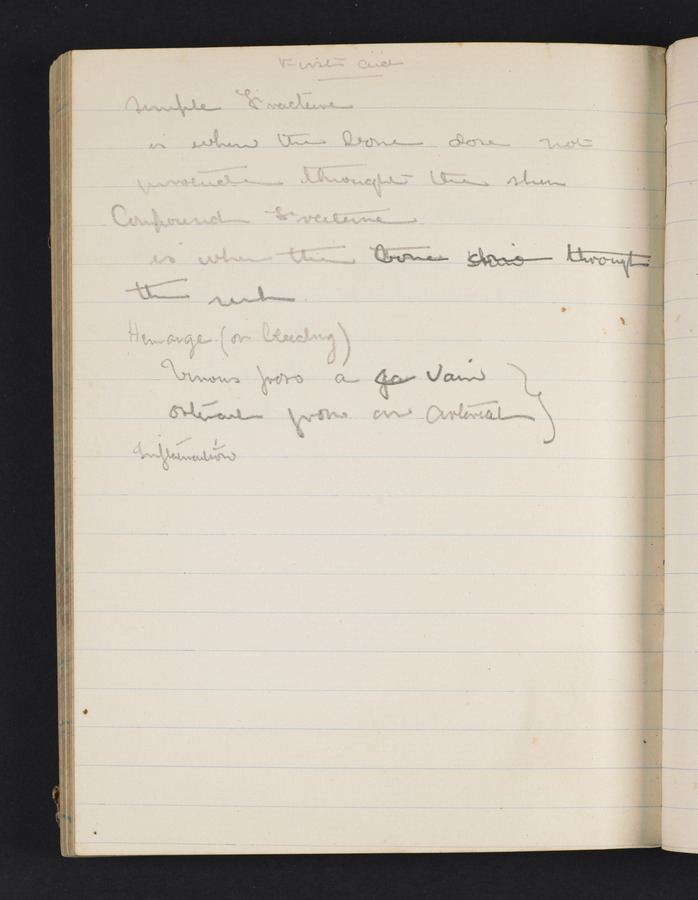 First aid
Simple Fracture
is when the bone dose not
through the
Compound Fracture
is when the bone through
the
Hemarge (or bleeding)
Venous from a Vain
from an Arterial
Inflamation